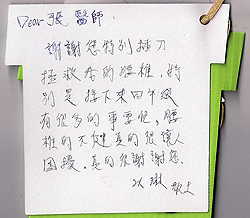 Dear 張醫師:
謝謝您特別插刀
拯救我的腰椎,特
別是接下來四年級
有很多的事要忙,腰
椎的不健真的很讓人
困擾。真的很謝謝您.
敬上